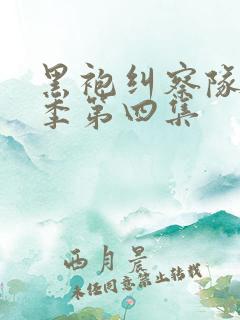 黑袍纠察队
季第四集
西月晨
未经同意禁止转载